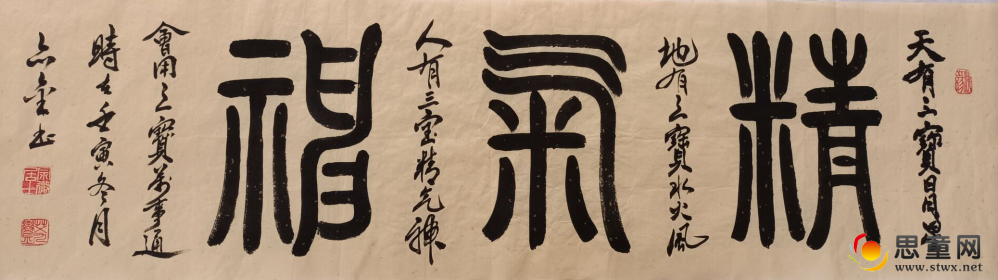 天有三寶日月星
精
地有三寶水火風
氣
人有三宝精气神
神
會用三寶萬事通
時在壬寅冬月
思童网
www.stwx.net